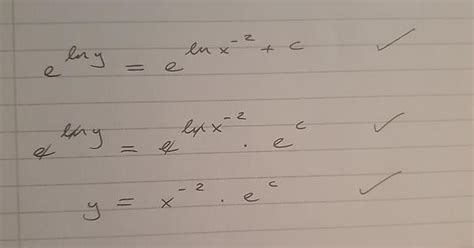 e^{ln y} = e^{ln x^{-2} + c} ✓
e^{ln y} = e^{ln x^{-2}} · e^{c} ✓
y = x^{-2} · e^{c} ✓